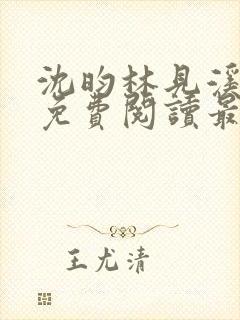 沈昀林見深
免費閱讀最
王尤清